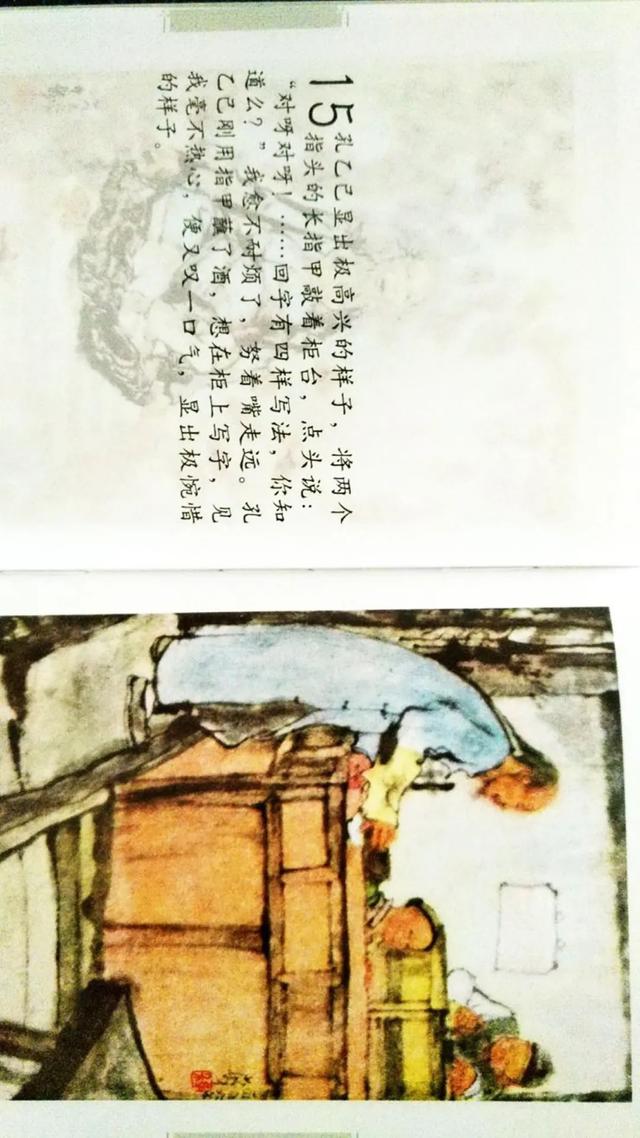 15 孔乙己显出极高兴的样子，将两个
指头的长指甲敲着柜台，点头说：
“对呀对呀！……回字有四样写法，你知
道么？”我愈不耐烦了，努着嘴走远。孔
乙己刚用指甲蘸了酒，想在柜上写字，见
我毫不热心，便又叹一口气，显出极惋惜
的样子。